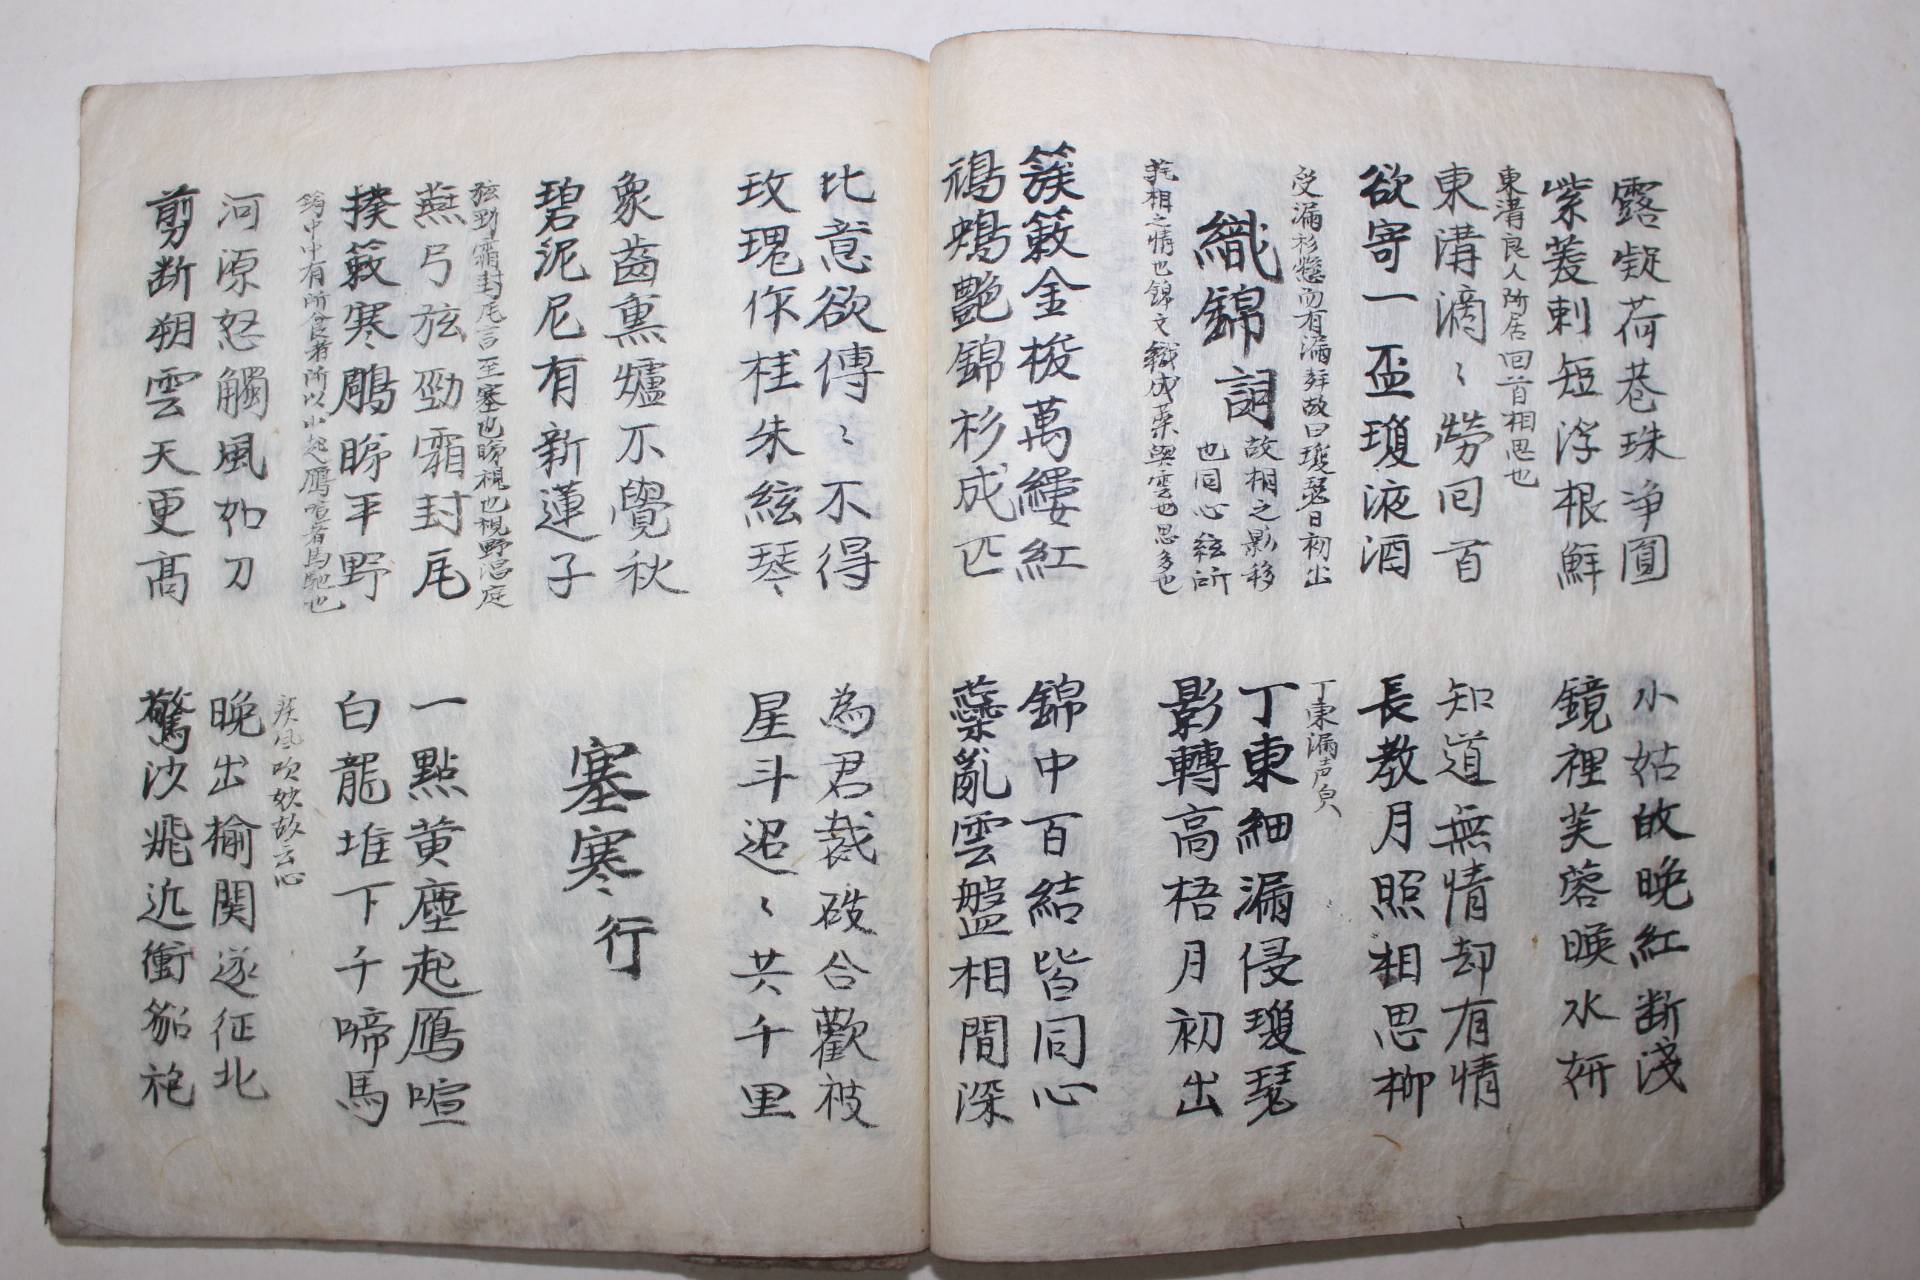 露凝荷巷珠淨圓
小姑故晚紅断淺
紫菱刺短浮根鮮
鏡裡芙蓉暎水妍
東溝良人所居回首相思也
東溝滴〻勞回首
知道無情却有情
欲寄一盃瓊液酒
長教月照相思柳
受漏杉 而有漏 故曰瓊瑟日初出
丁東漏声皃
織錦詞
丁東細漏侵瓊瑟
故相之影移
也同心結所
影轉高梧月初出
相之情也錦文織成葉與雲也思多也
簇簌金梭萬縷紅
錦中百結皆同心
鴛艶錦衫成匹
蘂亂雲盤相間深
比意欲傳〻不得
為君裁破合歡被
玫瑰作桂朱絃琴
星斗迢〻共千里
象齒熏爐不覺秋
碧泥尼有新蓮子
塞寒行
弦勁霜封尾言至塞也睇視也視野 庭
燕弓弦勁霜封尾
一點黃塵起鴈喧
撲簌寒鵰睇平野
白龍堆下千啼馬
中有所食者所以小起鴈喧者馬馳也
疾風吹 故云心
河源怒觸風如刀
晚出榆関逐征北
剪断朔雲天更高
驚沙飛迸衝貂袍